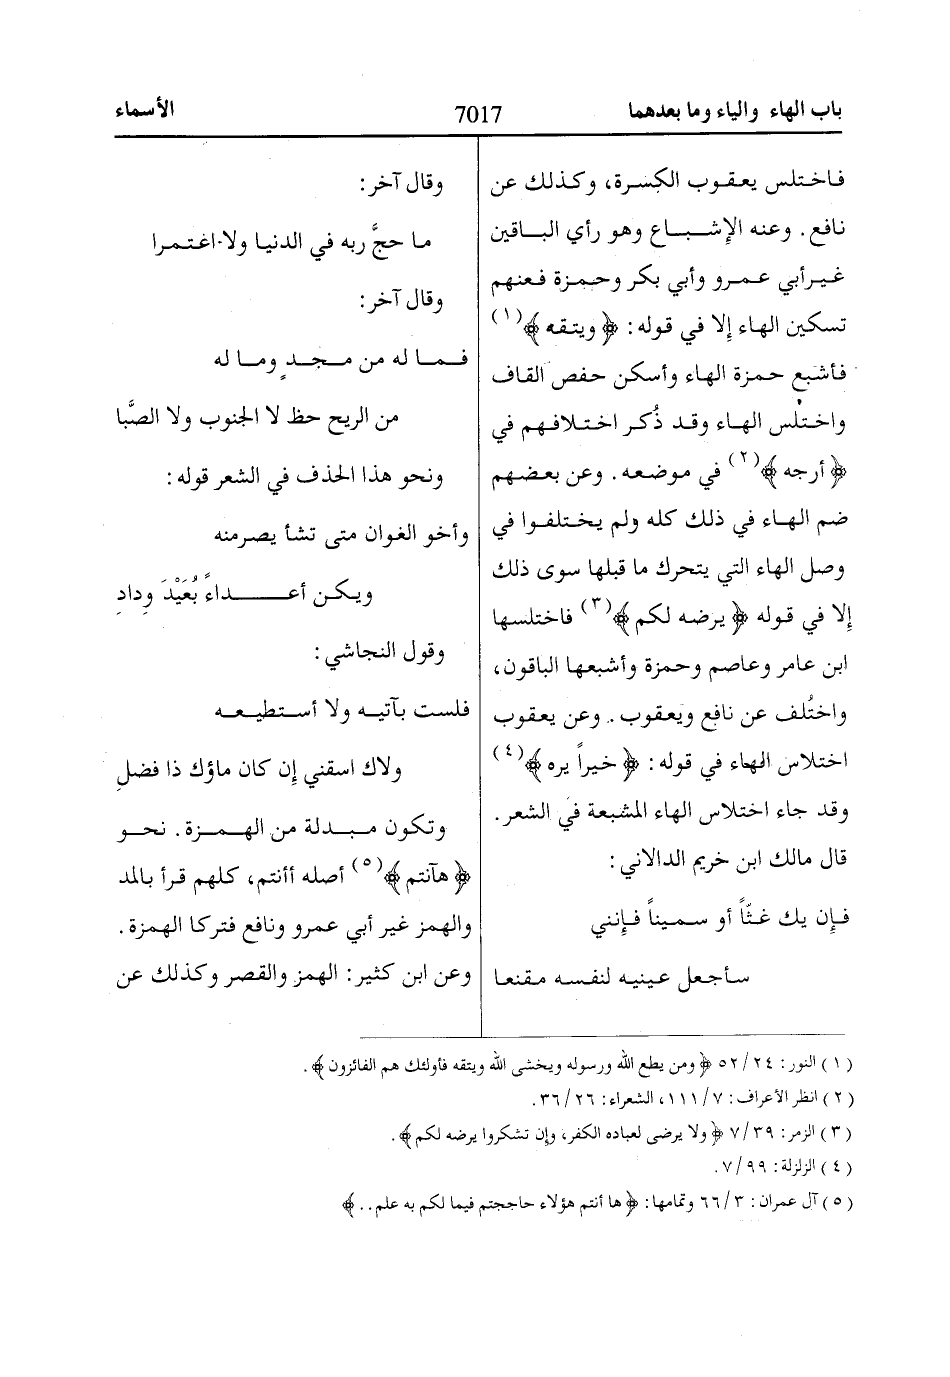 باب الهاء والياء وما بعدهما
7017
الأسماء
فاختلس يعقوب الكسرة، وكذلك عن
نافع. وعنه الإشباع وهو رأي الباقين
غيرأبي عمرو وأبي بكر وحمزة فعنهم
تسكين الهاء إلا في قوله: ﴿ ويتقه ﴾(١)
فأشبع حمزة الهاء وأسكن حفص القاف
واختلس الهاء وقد ذُكر اختلافهم في
﴿ أرجه ﴾(٢) في موضعه. وعن بعضهم
ضم الهاء في ذلك كله ولم يختلفوا في
وصل الهاء التي يتحرك ما قبلها سوى ذلك
إلا في قوله ﴿ يرضه لكم ﴾(٣) فاختلسها
ابن عامر وعاصم وحمزة وأشبعها الباقون،
واختُلف عن نافع ويعقوب. وعن يعقوب
اختلاس الهاء في قوله: ﴿ خيراً يره ﴾(٤)
وقد جاء اختلاس الهاء المشبعة في الشعر.
قال مالك ابن خريم الدالاني:
فإن يك غثّاً أو سميناً فإنني
سأجعل عينيه لنفسه مقنعا
وقال آخر:
ما حجَّ ربه في الدنيا ولا اغتمرا
وقال آخر:
فما له من مجدٍ وما له
من الريح حظ لا الجنوب ولا الصَّبا
ونحو هذا الحذف في الشعر قوله:
وأخو الغوان متى تشأ يصرمنه
ويكن أعداءً بُعَيْدَ وِدادِ
وقول النجاشي:
فلست بآتيه ولا أستطيعه
ولاك اسقني إن كان ماؤك ذا فضلِ
وتكون مبدلة من الهمزة. نحو
﴿ هآنتم ﴾(٥) أصله أأنتم، كلهم قرأ بالمد
والهمز غير أبي عمرو ونافع فتركا الهمزة.
وعن ابن كثير: الهمز والقصر وكذلك عن
(١) النور: ٥٢/٢٤ ﴿ ومن يطع الله ورسوله ويخشى الله ويتقه فأولئك هم الفائزون ﴾.
(٢) انظر الأعراف: ١١١/٧، الشعراء: ٣٦/٢٦.
(٣) الزمر: ٧/٣٩ ﴿ ولا يرضى لعباده الكفر، وإن تشكروا يرضه لكم ﴾.
(٤) الزلزلة: ٧/٩٩.
(٥) آل عمران: ٦٦/٣ وتمامها: ﴿ ها أنتم هؤلاء حاججتم فيما لكم به علم.. ﴾